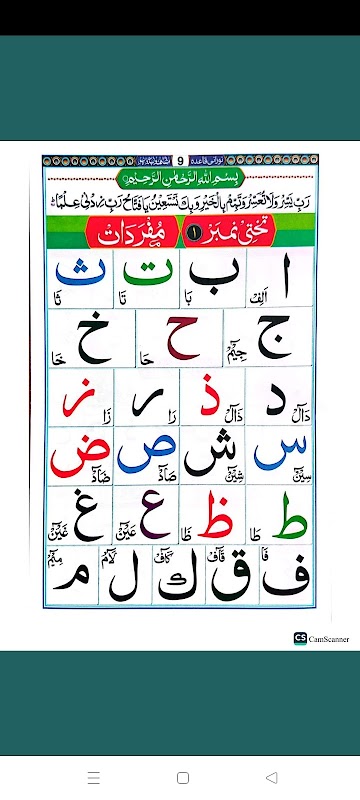 نورانی قاعدہ 9
بِسْمِ اللهِ الرَّحْمٰنِ الرَّحِيْمِ
رَبِّ يَسِّرْ وَلَا تُعَسِّرْ وَتَمِّمْ بِالْخَيْرِ وَبِكَ نَسْتَعِيْنُ يَا فَتَّاحُ رَبِّ زِدْنِيْ عِلْمًا
تختی نمبر ۱ مُفرَدَات
ا ب ت ث
اَلِفْ بَا تَا ثَا
ج ح خ
جِيْمْ حَا خَا
د ذ ر ز
دَالْ ذَالْ رَا زَا
س ش ص ض
سِيْنْ شِيْنْ صَادْ ضَادْ
ط ظ ع غ
طَا ظَا عَيْنْ غَيْنْ
ف ق ك ل م
فَا قَافْ كَافْ لَامْ مِيْمْ
CS CamScanner